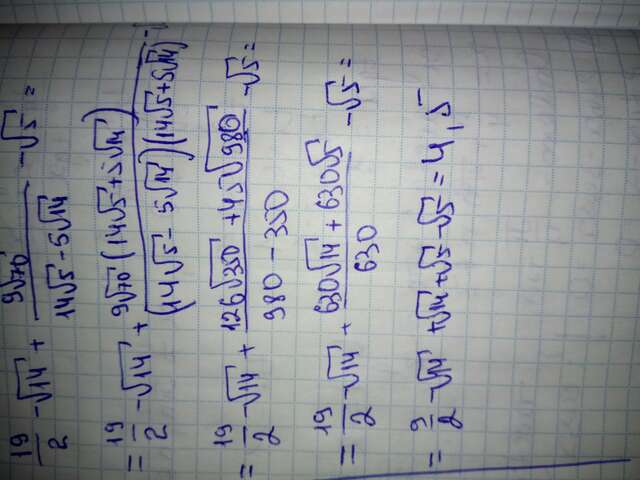 19/2 - √14 + 9√70/(14√5 - 5√14) - √5 =
= 19/2 - √14 + 9√70(14√5 + 5√14)/((14√5 - 5√14)(14√5 + 5√14)) -
= 19/2 - √14 + (126√350 + 45√980)/(980 - 350) - √5 =
= 19/2 - √14 + (630√14 + 630√5)/630 - √5 =
= 9/2 - √14 + √14 + √5 - √5 = 4,5